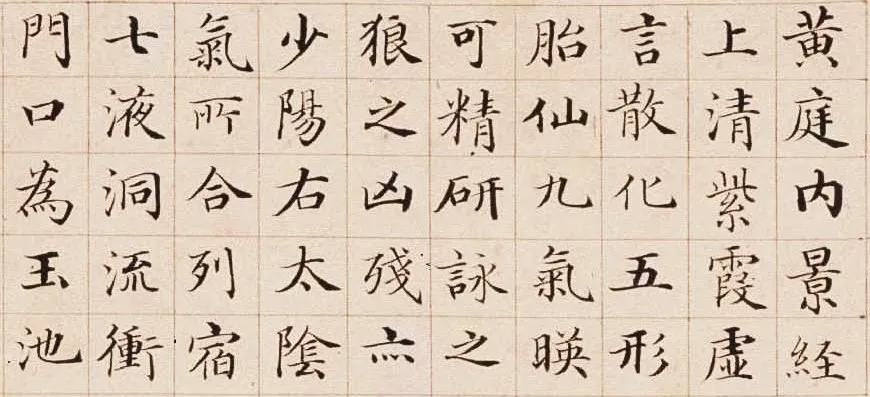 黄庭内景経
上清紫霞虚
言散化五形
胎仙九氣暎
可精研詠之
狼之凶殘亦
少陽右太陰
氣所合列宿
七液洞流衝
門口為玉池